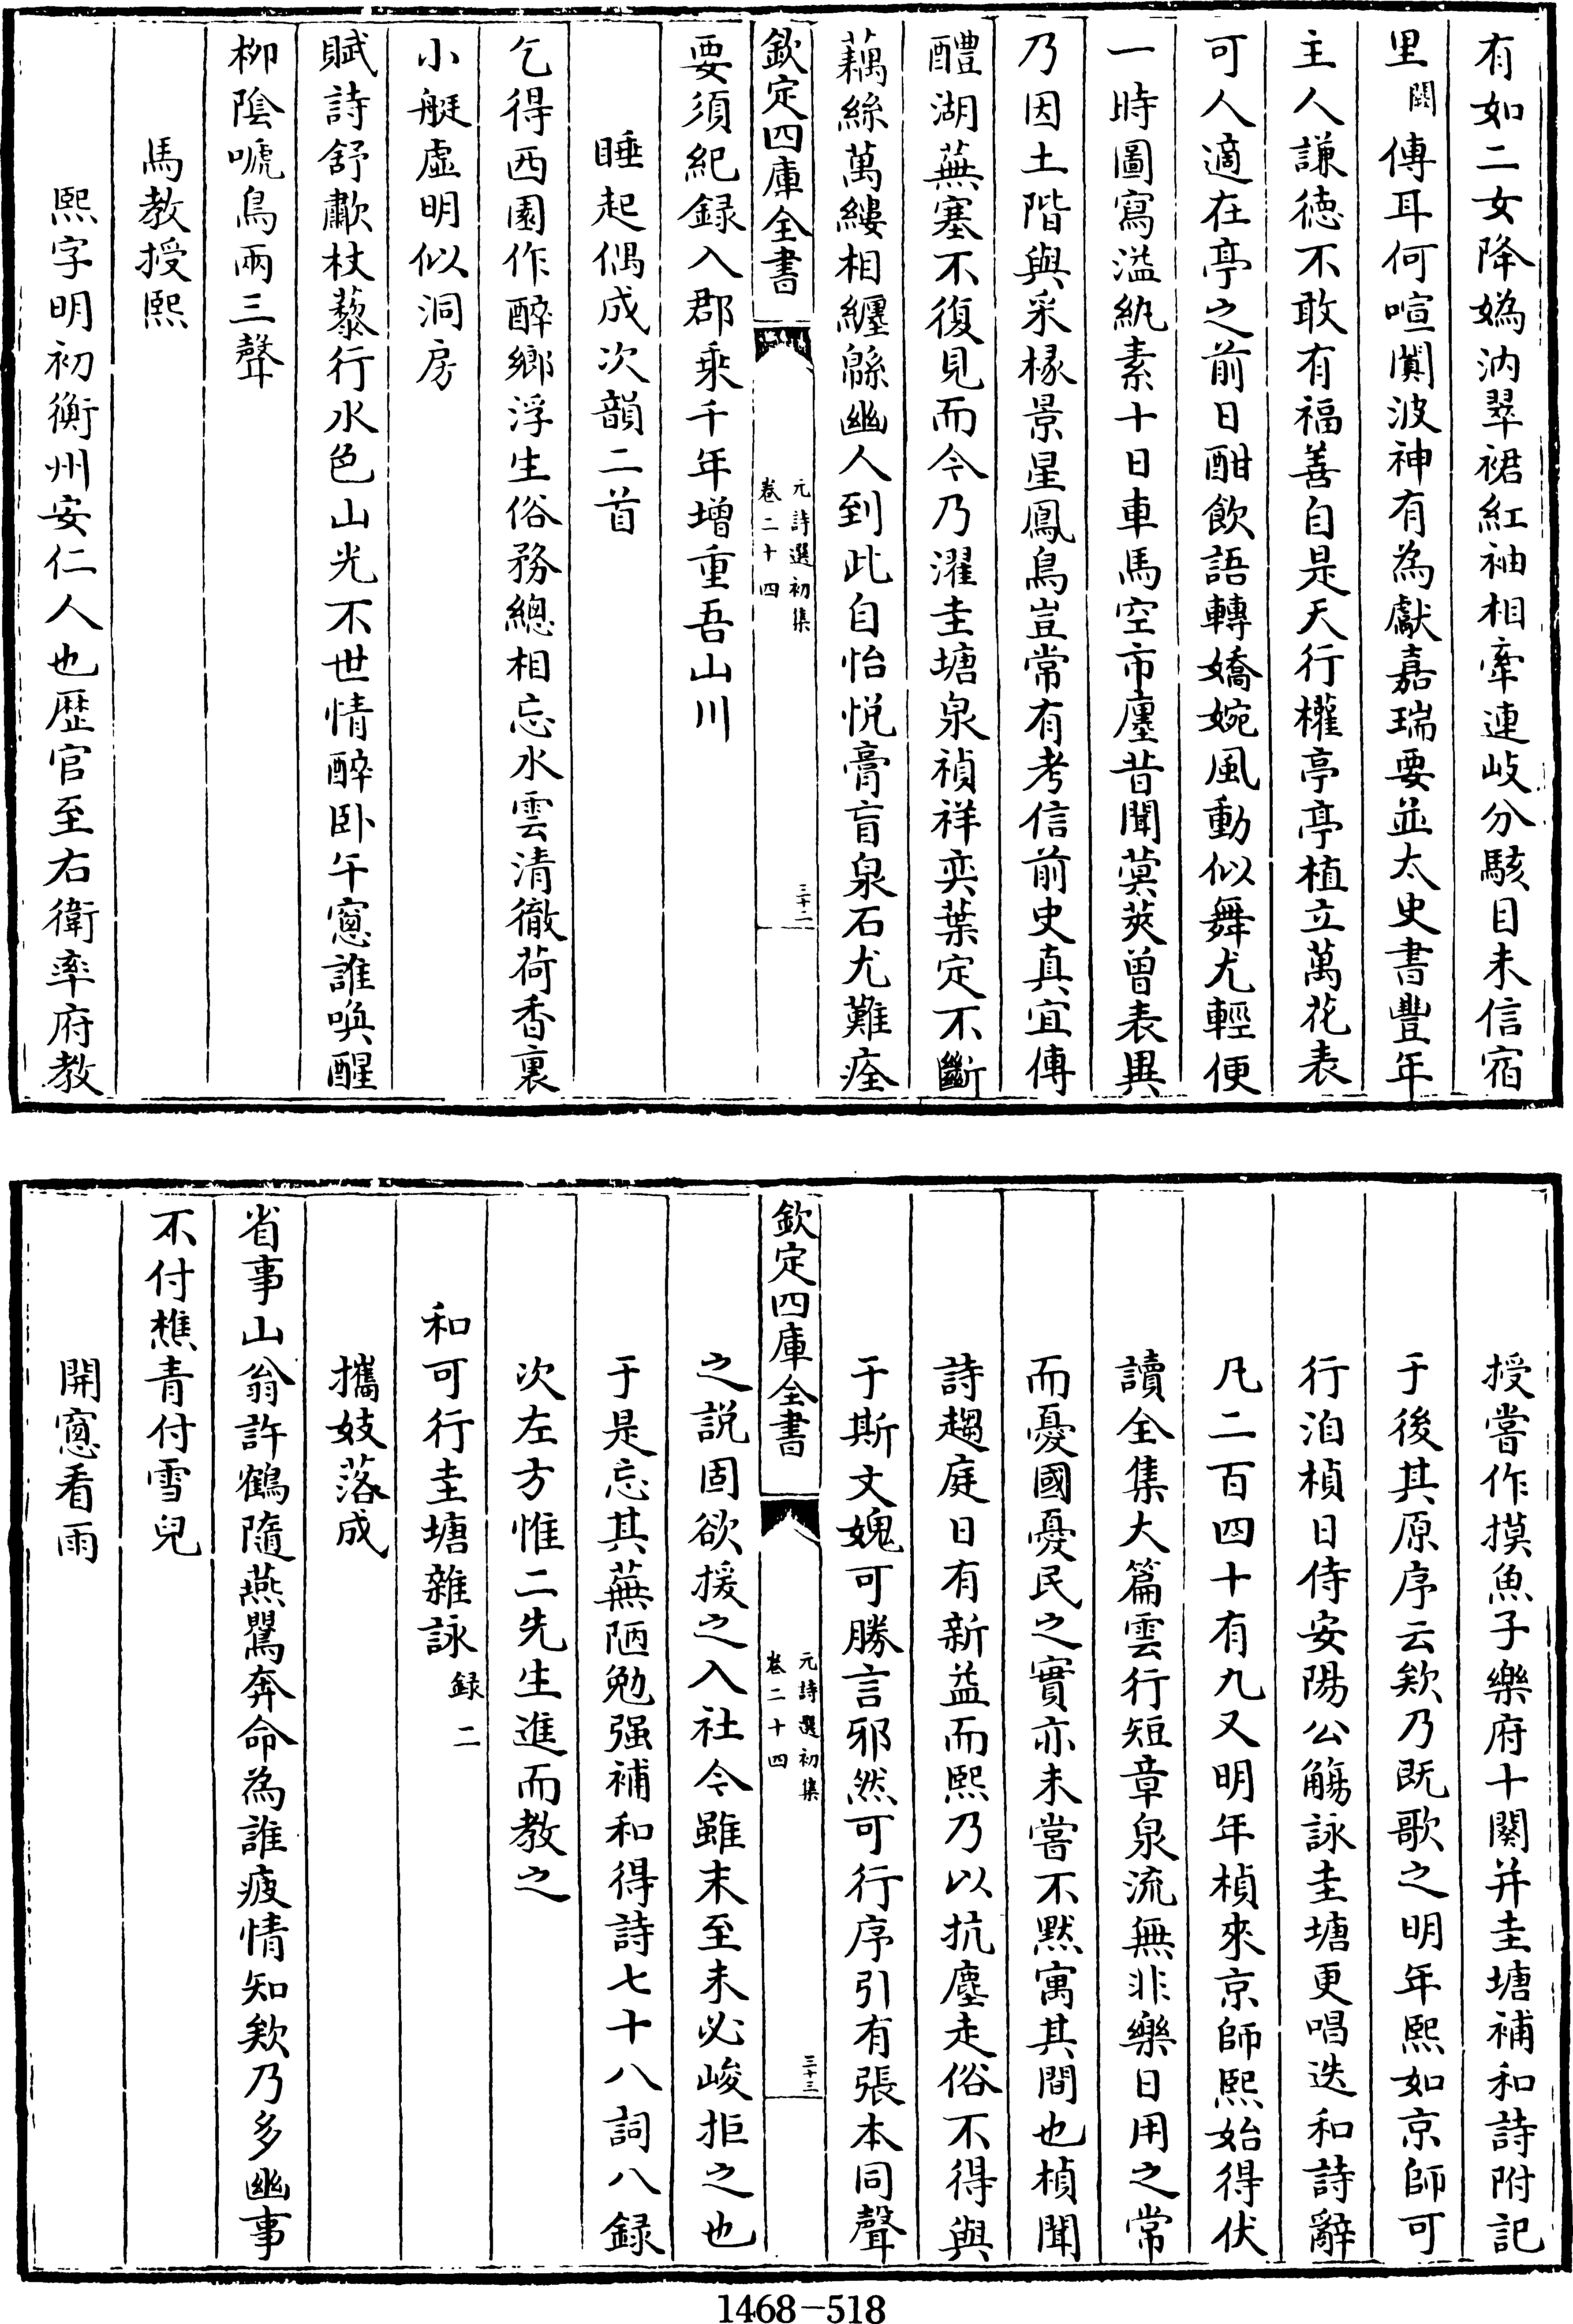 有如二女降嬀汭翠裙紅袖相牽連岐分駭目未信宿
里闕傳耳何喧闐波神有為獻嘉瑞要並太史書豐年
主人謙徳不敢有福善自是天行權亭亭植立萬花表
可人適在亭之前日酣飲語轉嬌婉風動似舞尤輕便
一時圖寫溢紈素十日車馬空市廛昔聞蓂莢曾表異
乃因土階與采椽景星鳳鳥豈常有考信前史真宜傳
醴湖蕪塞不復見而今乃濯圭塘泉禎祥奕葉定不斷
藕絲萬縷相纒緜幽人到此自怡悦膏肓泉石尤難痊
欽定四庫全書
元詩選初集
卷二十四
三十二
要須紀録入郡乗千年增重吾山川
睡起偶成次韻二首
乞得西園作醉鄉浮生俗務總相忘水雲清徹荷香裏
小艇虚明似洞房
賦詩舒歗杖藜行水色山光不世情醉卧午窻誰喚醒
柳陰嗁鳥兩三聲
馬教授熙
熙字明初衡州安仁人也歴官至右衛率府教
授嘗作摸魚子樂府十闋并圭塘補和詩附記
于後其原序云欸乃既歌之明年熙如京師可
行洎楨日侍安陽公觴詠圭塘更唱迭和詩辭
凡二百四十有九又明年楨來京師熙始得伏
讀全集大篇雲行短章泉流無非樂日用之常
而憂國憂民之實亦未嘗不黙寓其間也楨聞
詩趨庭日有新益而熙乃以抗塵走俗不得與
于斯文媿可勝言邪然可行序引有張本同聲
欽定四庫全書
元詩選初集
卷二十四
三十三
之説固欲援之入社今雖末至未必峻拒之也
于是忘其蕪陋勉强補和得詩七十八詞八録
次左方惟二先生進而教之
和可行圭塘雜詠録二
攜妓落成
省事山翁許鶴隨燕鸎奔命為誰疲情知欸乃多幽事
不付樵青付雪兒
開窻看雨
1468-518